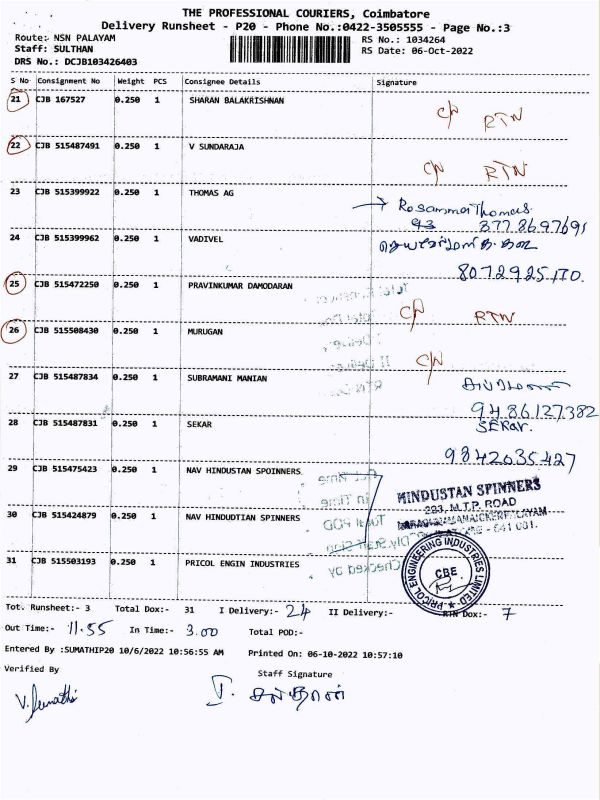 THE PROFESSIONAL COURIERS, Coimbatore
Delivery Runsheet - P20 - Phone No.:0422-3505555 - Page No.:3
Route:- NSN PALAYAM
RS No.: 1034264
Staff: SULTHAN
RS Date: 06-Oct-2022
DRS No.: DCJB103426403
S No Consignment No Weight PCS Consignee Details Signature
21 CJB 167527 0.250 1 SHARAN BALAKRISHNAN
C/N RTN
22 CJB 515487491 0.250 1 V SUNDARAJA
C/N RTN
23 CJB 515399922 0.250 1 THOMAS AG
Rosamma Thomas
93 877 8697691
24 CJB 515399962 0.250 1 VADIVEL
8072925170.
25 CJB 515472250 0.250 1 PRAVINKUMAR DAMODARAN
C/N RTN
26 CJB 515508430 0.250 1 MURUGAN
C/N
27 CJB 515487834 0.250 1 SUBRAMANI MANIAN
9486127382
28 CJB 515487831 0.250 1 SEKAR
SEKar.
9842035427
29 CJB 515475423 0.250 1 NAV HINDUSTAN SPOINNERS
HINDUSTAN SPINNERS
223, M.T.P. ROAD
30 CJB 515424879 0.250 1 NAV HINDUDTIAN SPINNERS
641 031.
31 CJB 515503193 0.250 1 PRICOL ENGIN INDUSTRIES
PRICOL ENGINEERING INDUSTRIES LIMITED
CBE
Tot. Runsheet:- 3 Total Dox:- 31 I Delivery:- 24 II Delivery:- RTN Dox:- 7
Out Time:- 11.55 In Time:- 3.00 Total POD:-
Entered By :SUMATHIP20 10/6/2022 10:56:55 AM Printed On: 06-10-2022 10:57:10
Verified By Staff Signature
V. Sumathi
சுல்தான்